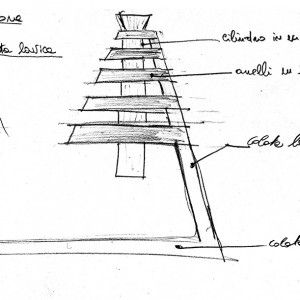 one
ta lavica
cilindro in m
anelli in
colata l
colata